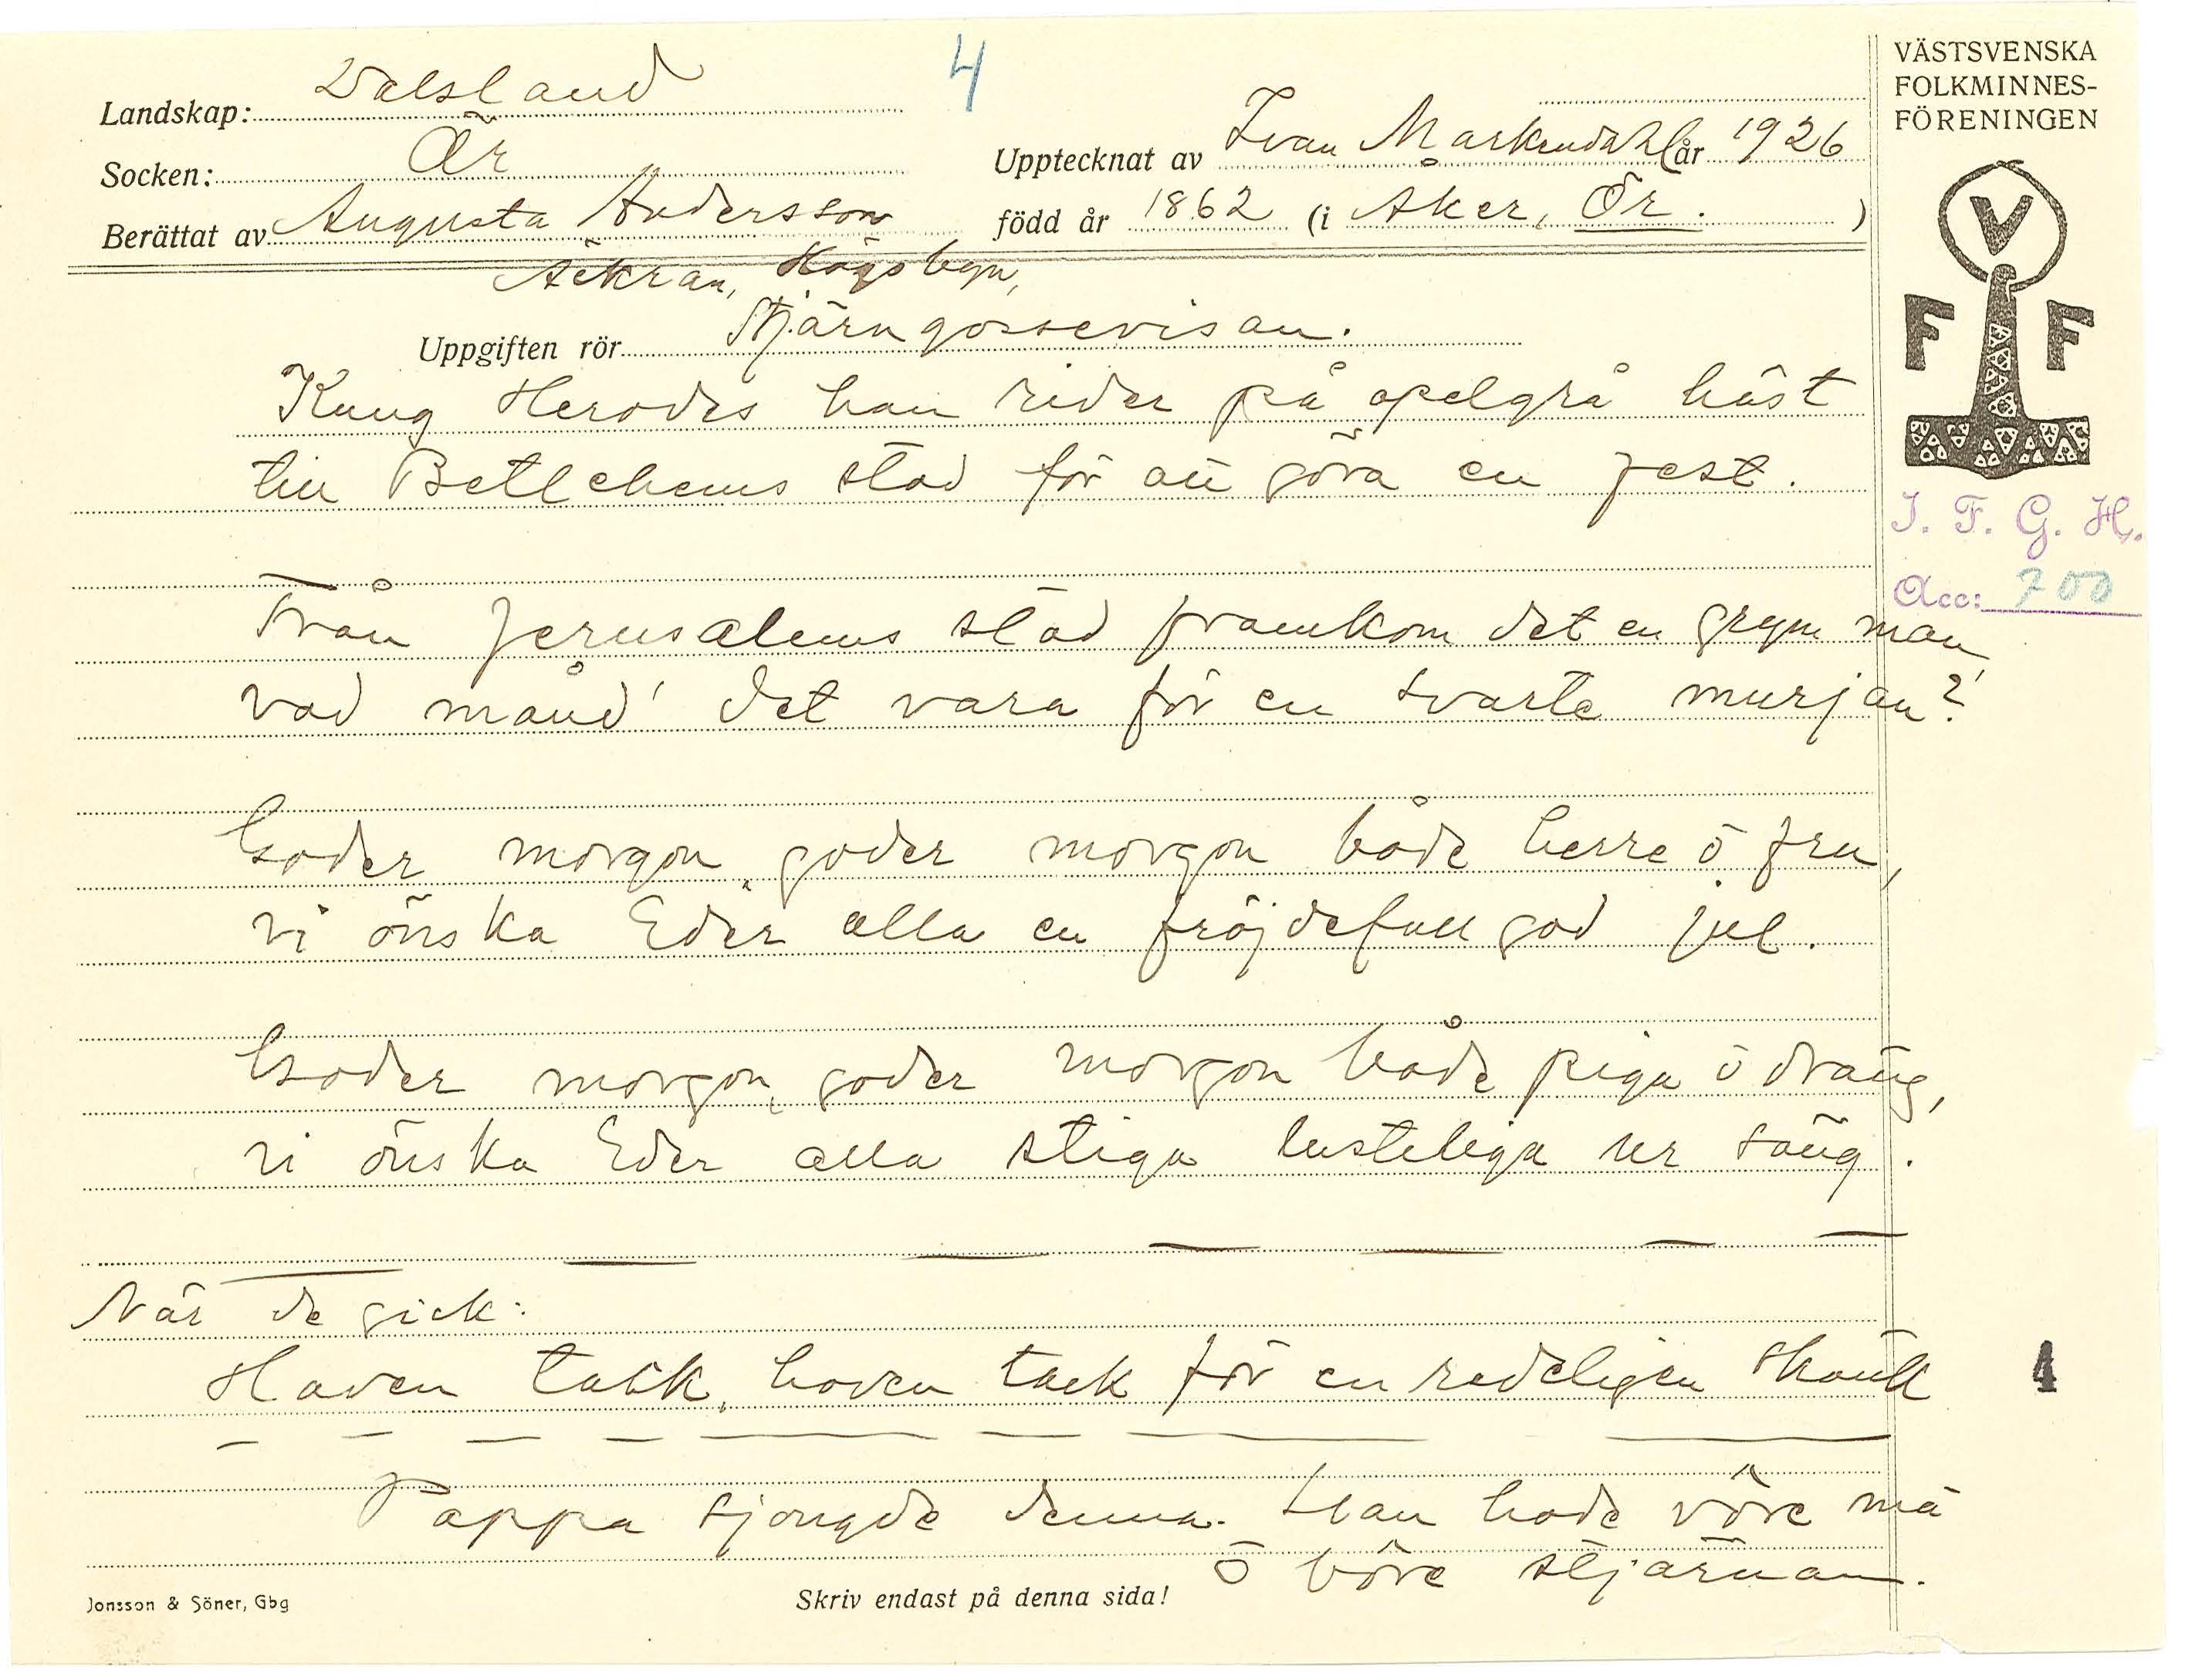 4
VÄSTSVENSKA
FOLKMINNES-
FÖRENINGEN
Landskap: Dalsland
Socken: Ör
Upptecknat av Ivan Markendahl år 1926
Berättat av Augusta Andersson född år 1862 (i Åker, Ör. )
Åckran, Högsbyn,
Uppgiften rör Stjärngossevisan.
V
F F
Kung Herodes han rider på apelgrå häst
till Betlehems stad för att göra en fest.
I. F. G. H.
Acc: 700
Från Jerusalems stad framkom det en grym man,
vad månd' det vara för en svarte murjan?
Goder morgon, goder morgon både herre ö fru,
vi önska Eder alla en fröjdefull god jul.
Goder morgon, goder morgon både piga ö dräng,
vi önska Eder alla stiga lusteliga ur säng.
När de gick:
Haven tack, haven tack för en redeligen skänk
4
Pappa sjongde denna. Han hade vöre mä
ö böre stjärnan.
Jonsson & Söner, Gbg
Skriv endast på denna sida!